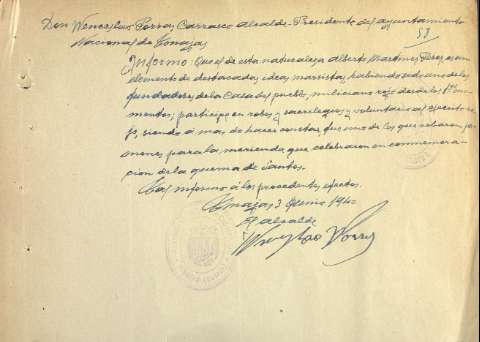 Don Wenceslao Porras Carrasco Alcalde-Presidente del ayuntamiento
58
Nacional de Comajas
Informo: Que el de esta naturaleza Alberto Martínez Pérez, es un
elemento de destacadas ideas marxistas, habiendo sido uno de los
fundadores de la Casa del pueblo, miliciano rojo desde los 1os mo
mentos, participo en robos y sacrilegios, y voluntario al ejercito ro
jo, siendo á mas de hacer constar que uno de los que robaron ja
mones para la merienda que celebraron en conmemora-
cion de la quema de Santos.
Lo informo á los procedentes efectos.
3 Junio 1940
El alcalde
Wenceslao Porras